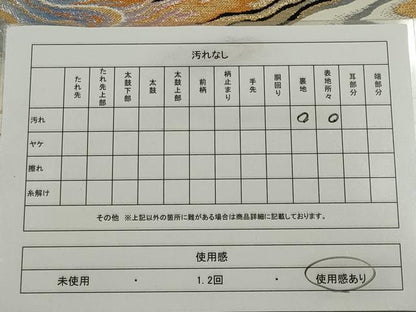 汚れなし
たれ先 たれ先上部 太鼓下部 太鼓 太鼓上部 前柄 柄止まり 手先 胴回り 裏地 表地所々 耳部分 端部分
汚れ ○ ○
ヤケ
擦れ
糸解け
その他 ※上記以外の箇所に難がある場合は商品詳細に記載しております。
使用感
未使用 ・ 1.2回 ・ 使用感あり